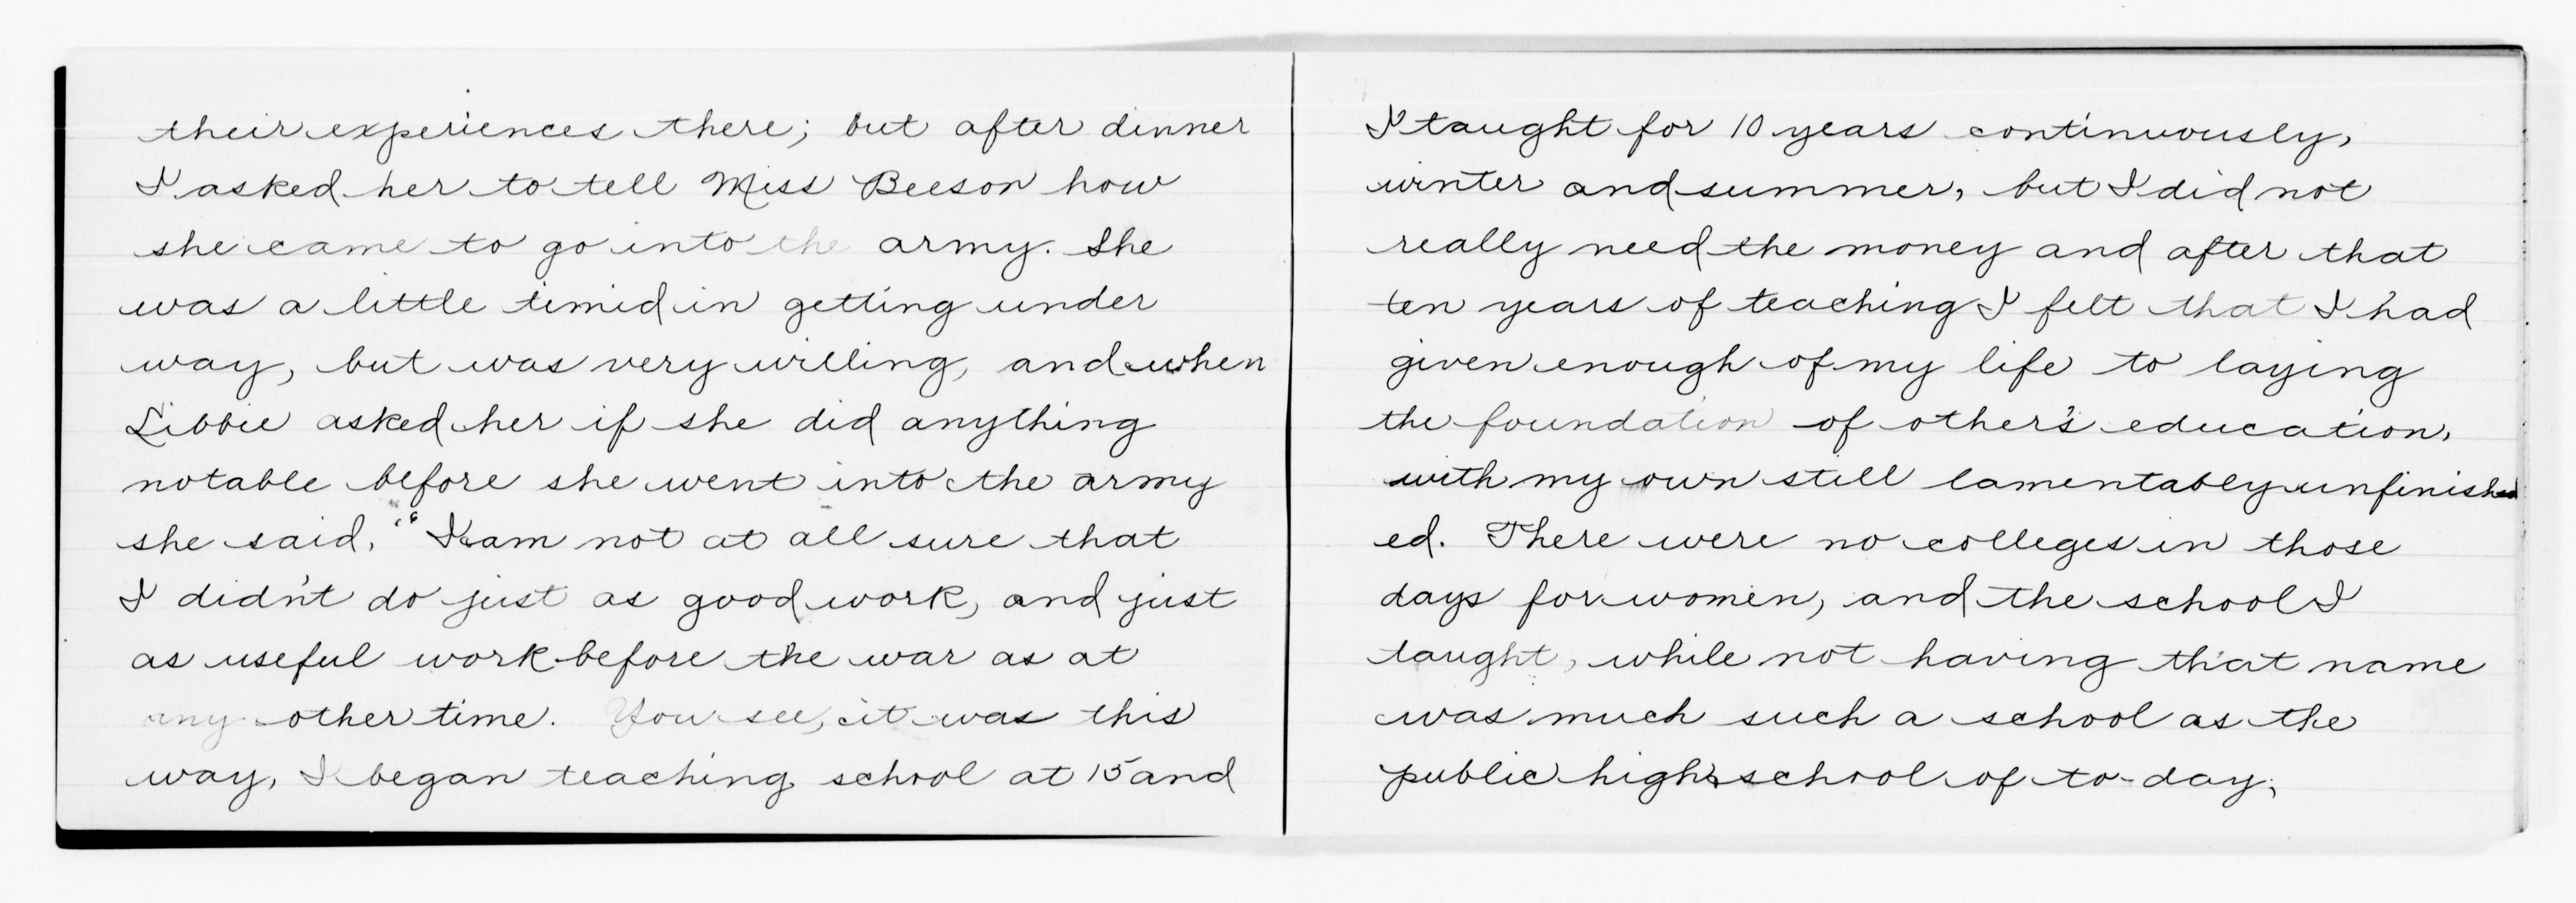 their experiences there; but after dinner
I asked her to tell Miss Beeson how
she came to go into the army. She
was a little timid in getting under
way, but was very willing, and when
Libbie asked her if she did anything
notable before she went into the army
she said, "I am not at all sure that
I didn't do just as good work, and just
as useful work before the war as at
any other time. You see, it was this
way, I began teaching school at 15 and
I taught for 10 years continuously,
winter and summer, but I did not
really need the money and after that
ten years of teaching I felt that I had
given enough of my life to laying
the foundation of other's education,
with my own still lamentably unfinished
ed. There were no colleges in those
days for women, and the school I
taught, while not having that name
was much such a school as the
public high school of to-day,